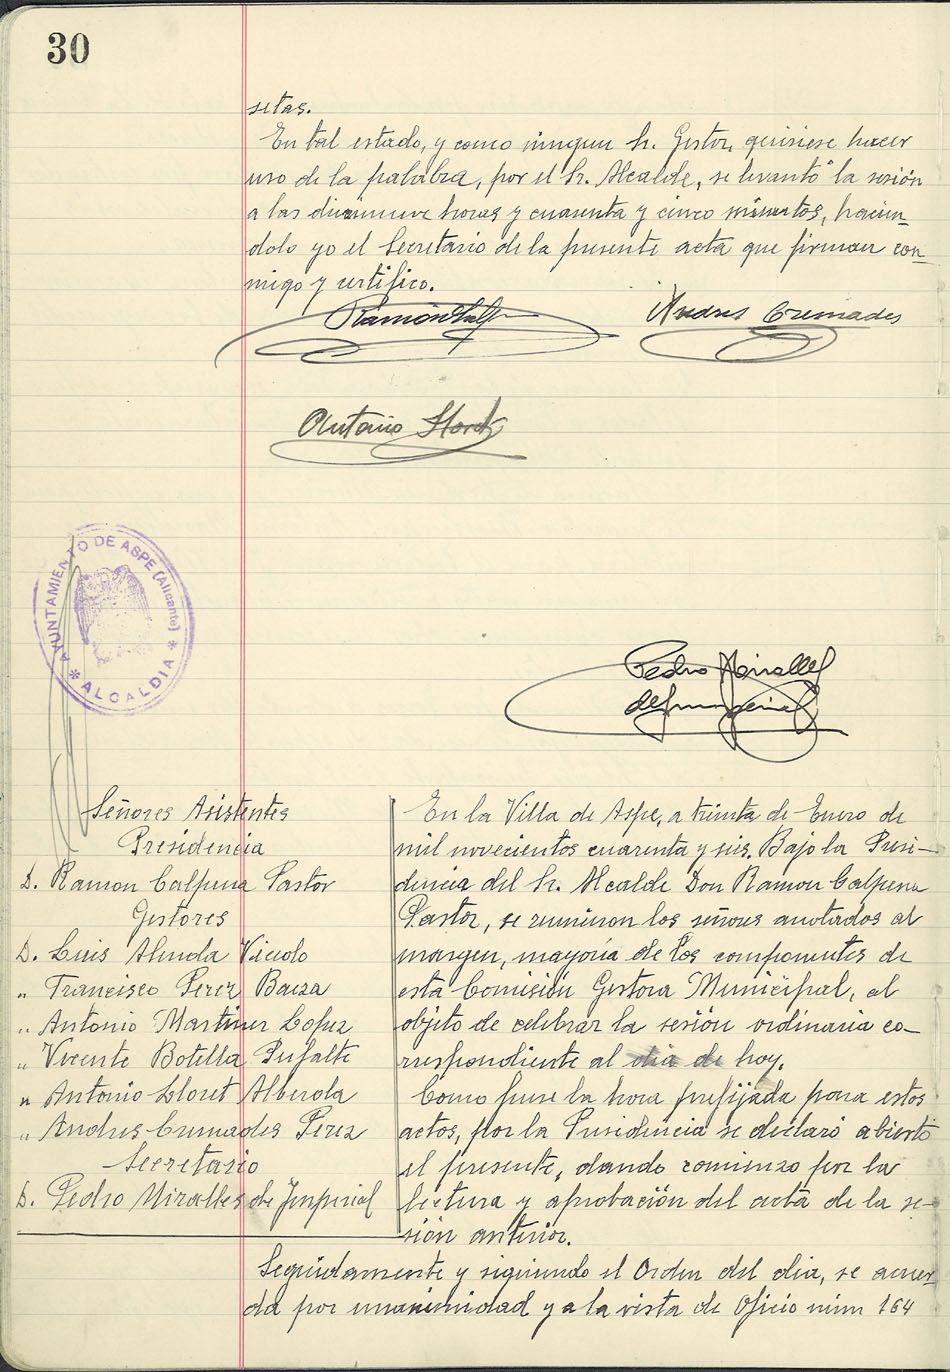 30
setas.
En tal estado, y como ningun Sr. Gestor, quisiese hacer
uso de la palabra, por el Sr. Alcalde, se levantó la sesión
a las diecinueve horas y cuarenta y cinco minutos, hacien_
dolo yo el Secretario de la presente acta que firman con_
migo y certifico.
Ramón
Andres Cremades
Antonio
AYUNTAMIENTO DE ASPE (Alicante)
* ALCALDIA *
Pedro Miralles
de Imperial
Señores Asistentes
Presidencia
D. Ramon Calpena Pastor
Gestores
D. Luis Vicedo
" Francisco Perez Baeza
" Antonio Martinez Lopez
" Vicente Botella
" Antonio Lloret Alberola
" Andres Cremades Perez
Secretario
D. Pedro Miralles de Imperial
En la Villa de Aspe, a treinta de Enero de
mil novecientos cuarenta y seis. Bajo la Presi-
dencia del Sr. Alcalde Don Ramon Calpena
Pastor, se reunieron los señores anotados al
margen, mayoria de los componentes de
esta Comisión Gestora Municipal, al
objeto de celebrar la sesión ordinaria co_
rrespondiente al dia de hoy.
Como fuese la hora prefijada para estos
actos, por la Presidencia se declaró abierto
el presente, dando comienzo por la
lectura y aprobación del acta de la se-
sión anterior.
Seguidamente y siguiendo el Orden del dia, se acuer_
da por unanimidad y a la vista de Oficio núm 164